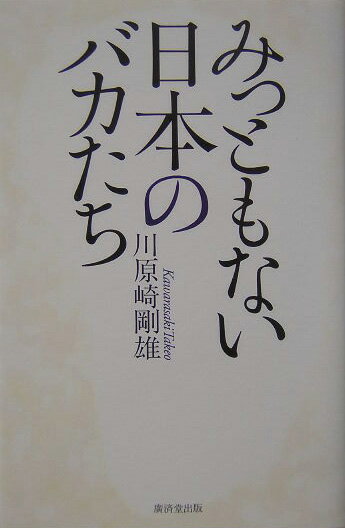 みっともない
日本の
バカたち
川原崎剛雄
Kawarasaki Takeo
廣済堂出版